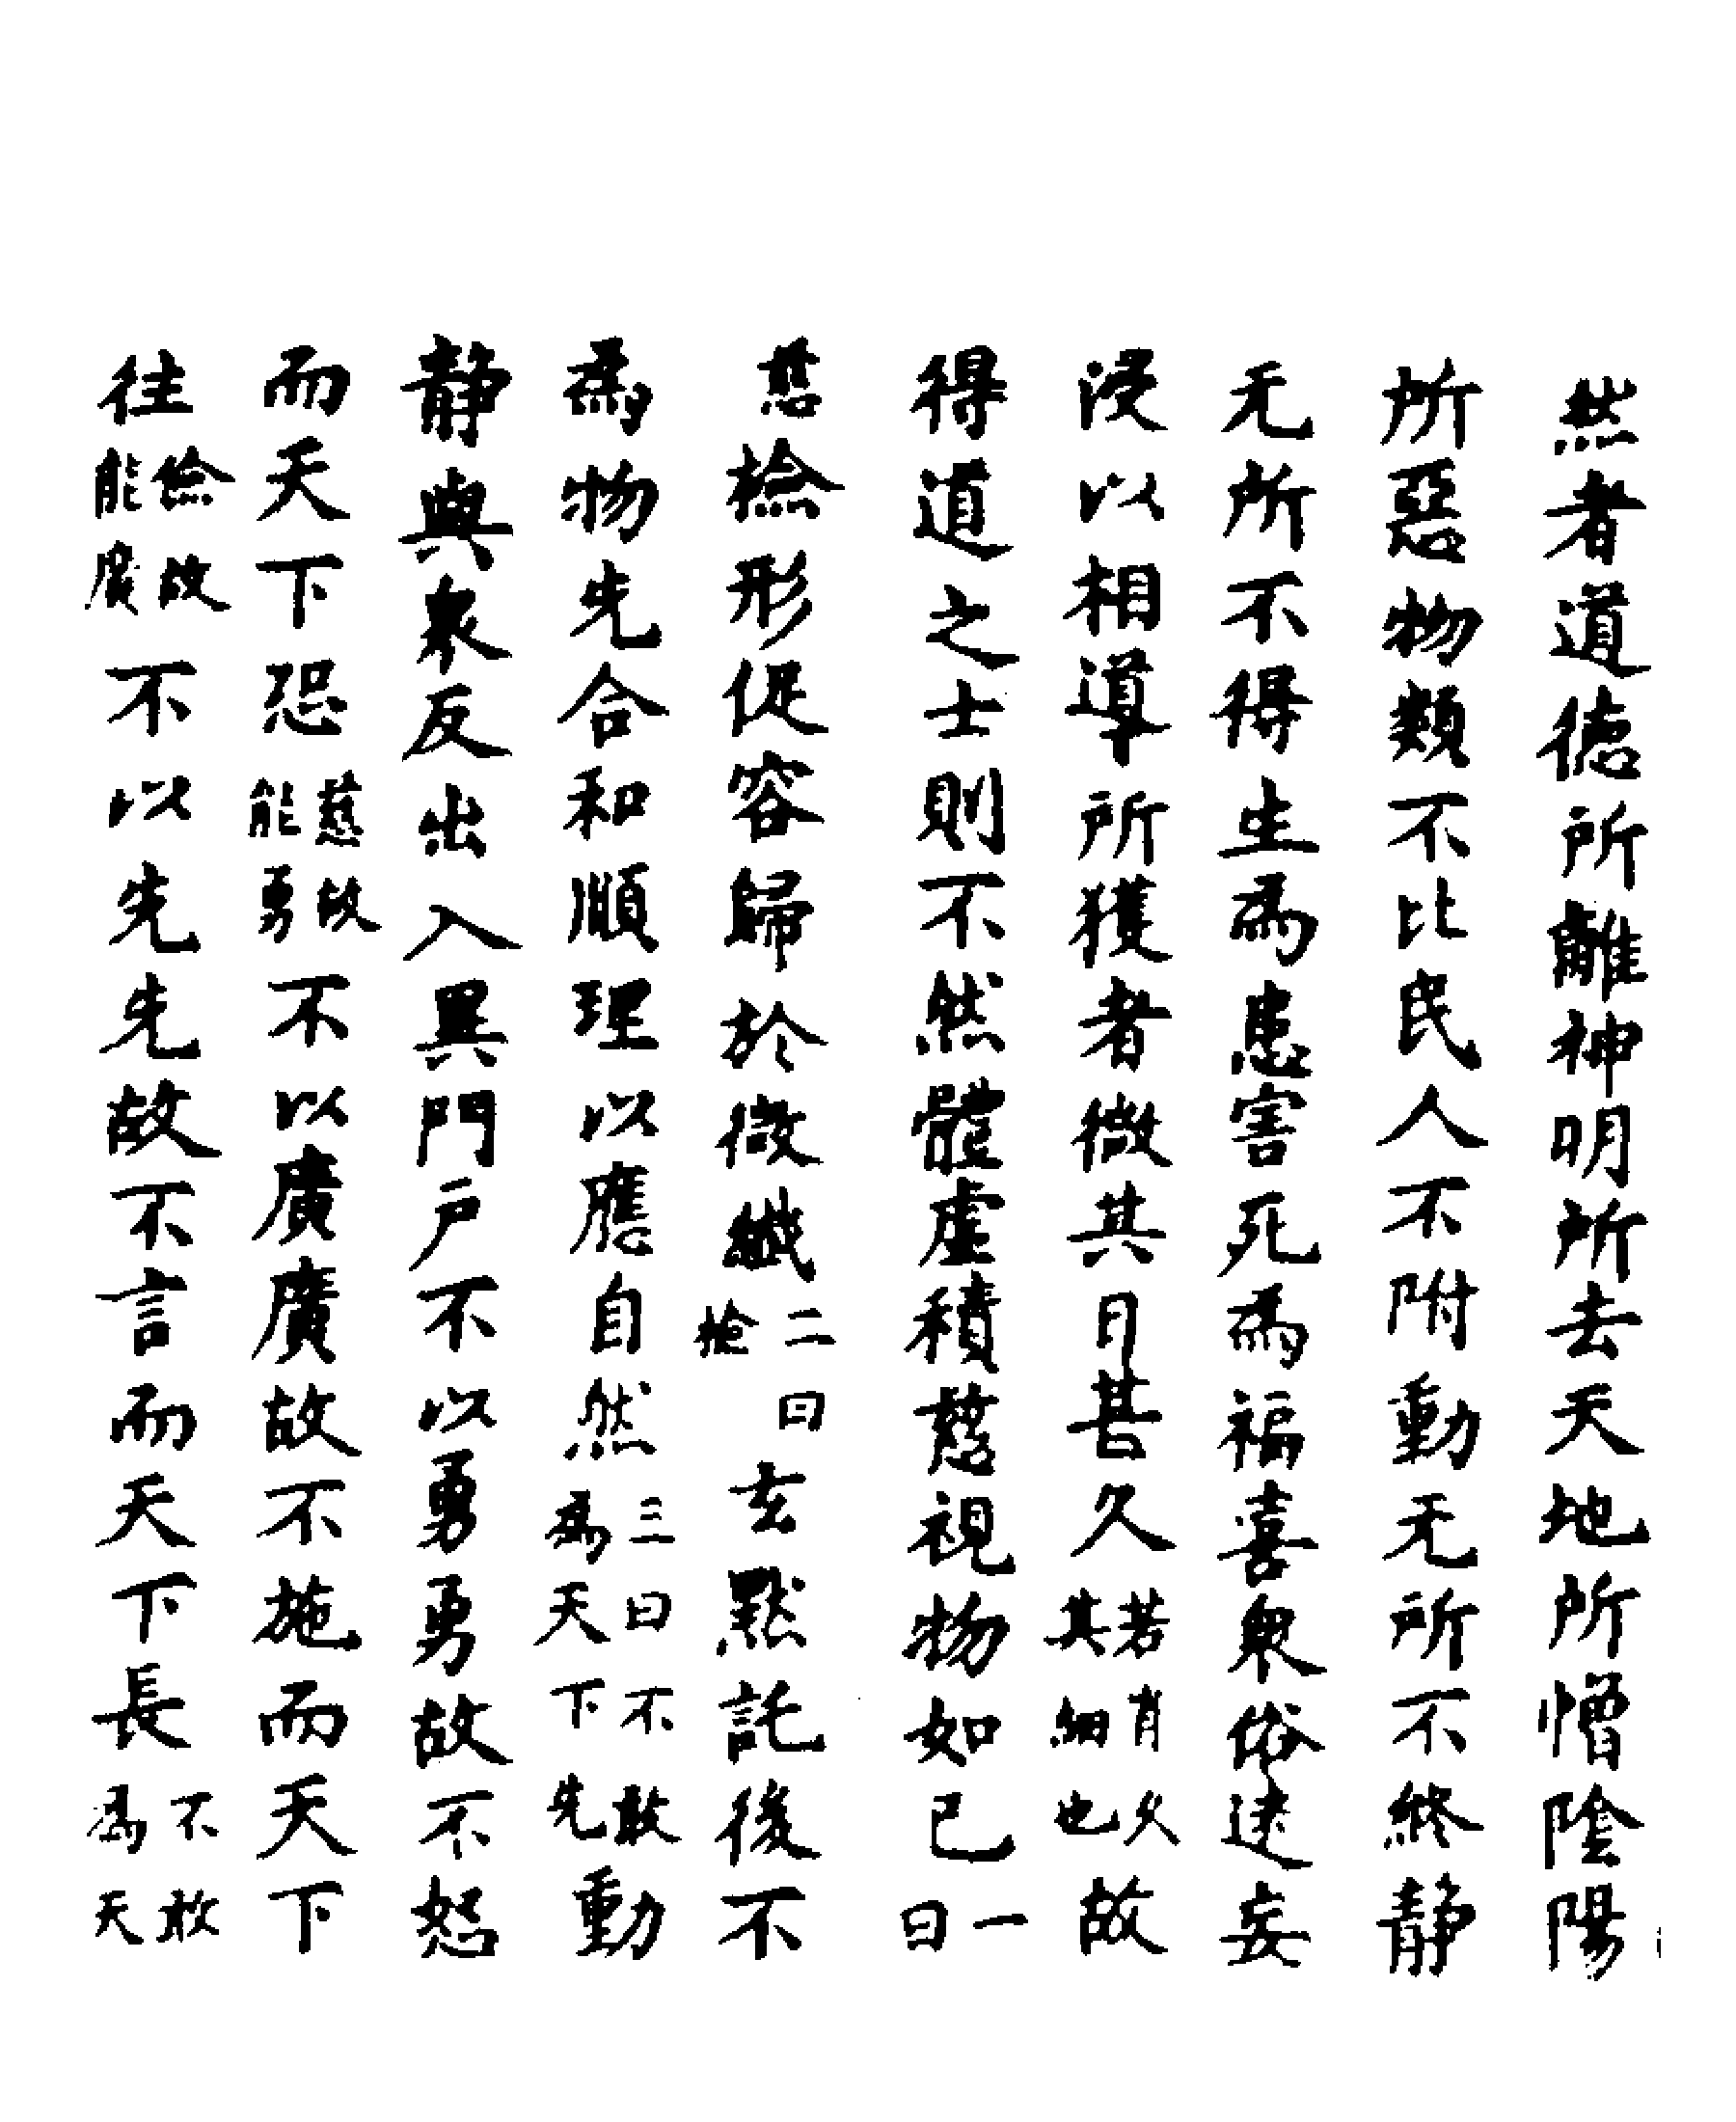 然者道德所離神明所去天地所憎陰陽
所惡物類不比民人不附動无所不終静
无所不得生為患害死為福喜衆俗逮妄
浸以相導所獲者微其日甚久若肖久其細也故
得道之士則不然體虛積慈視物如己一曰
慈撿形促容歸於微纖二曰撿玄默託後不
為物先合和順理以應自然三曰不敢為天下先動
静與衆反出入異門户不以勇勇故不怒
而天下恐慈故能勇不以廣廣故不施而天下
往儉故能廣不以先先故不言而天下長不敢為天